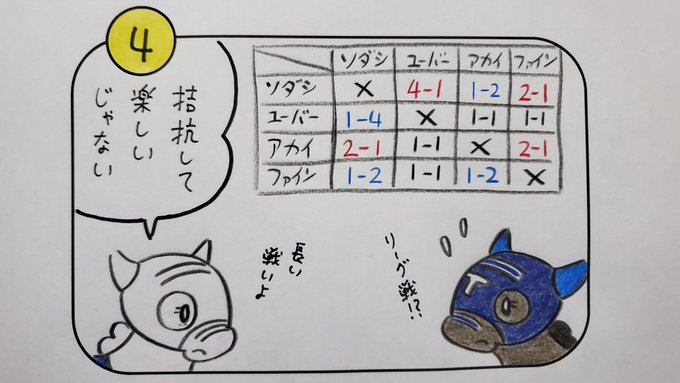 4
拮抗して
楽しい
じゃない
ソダシ ユーバー アカイ ファイン
ソダシ × 4-1 1-2 2-1
ユーバー 1-4 × 1-1 1-1
アカイ 2-1 1-1 × 2-1
ファイン 1-2 1-1 1-2 ×
リーグ戦!?
長い
戦いよ
T